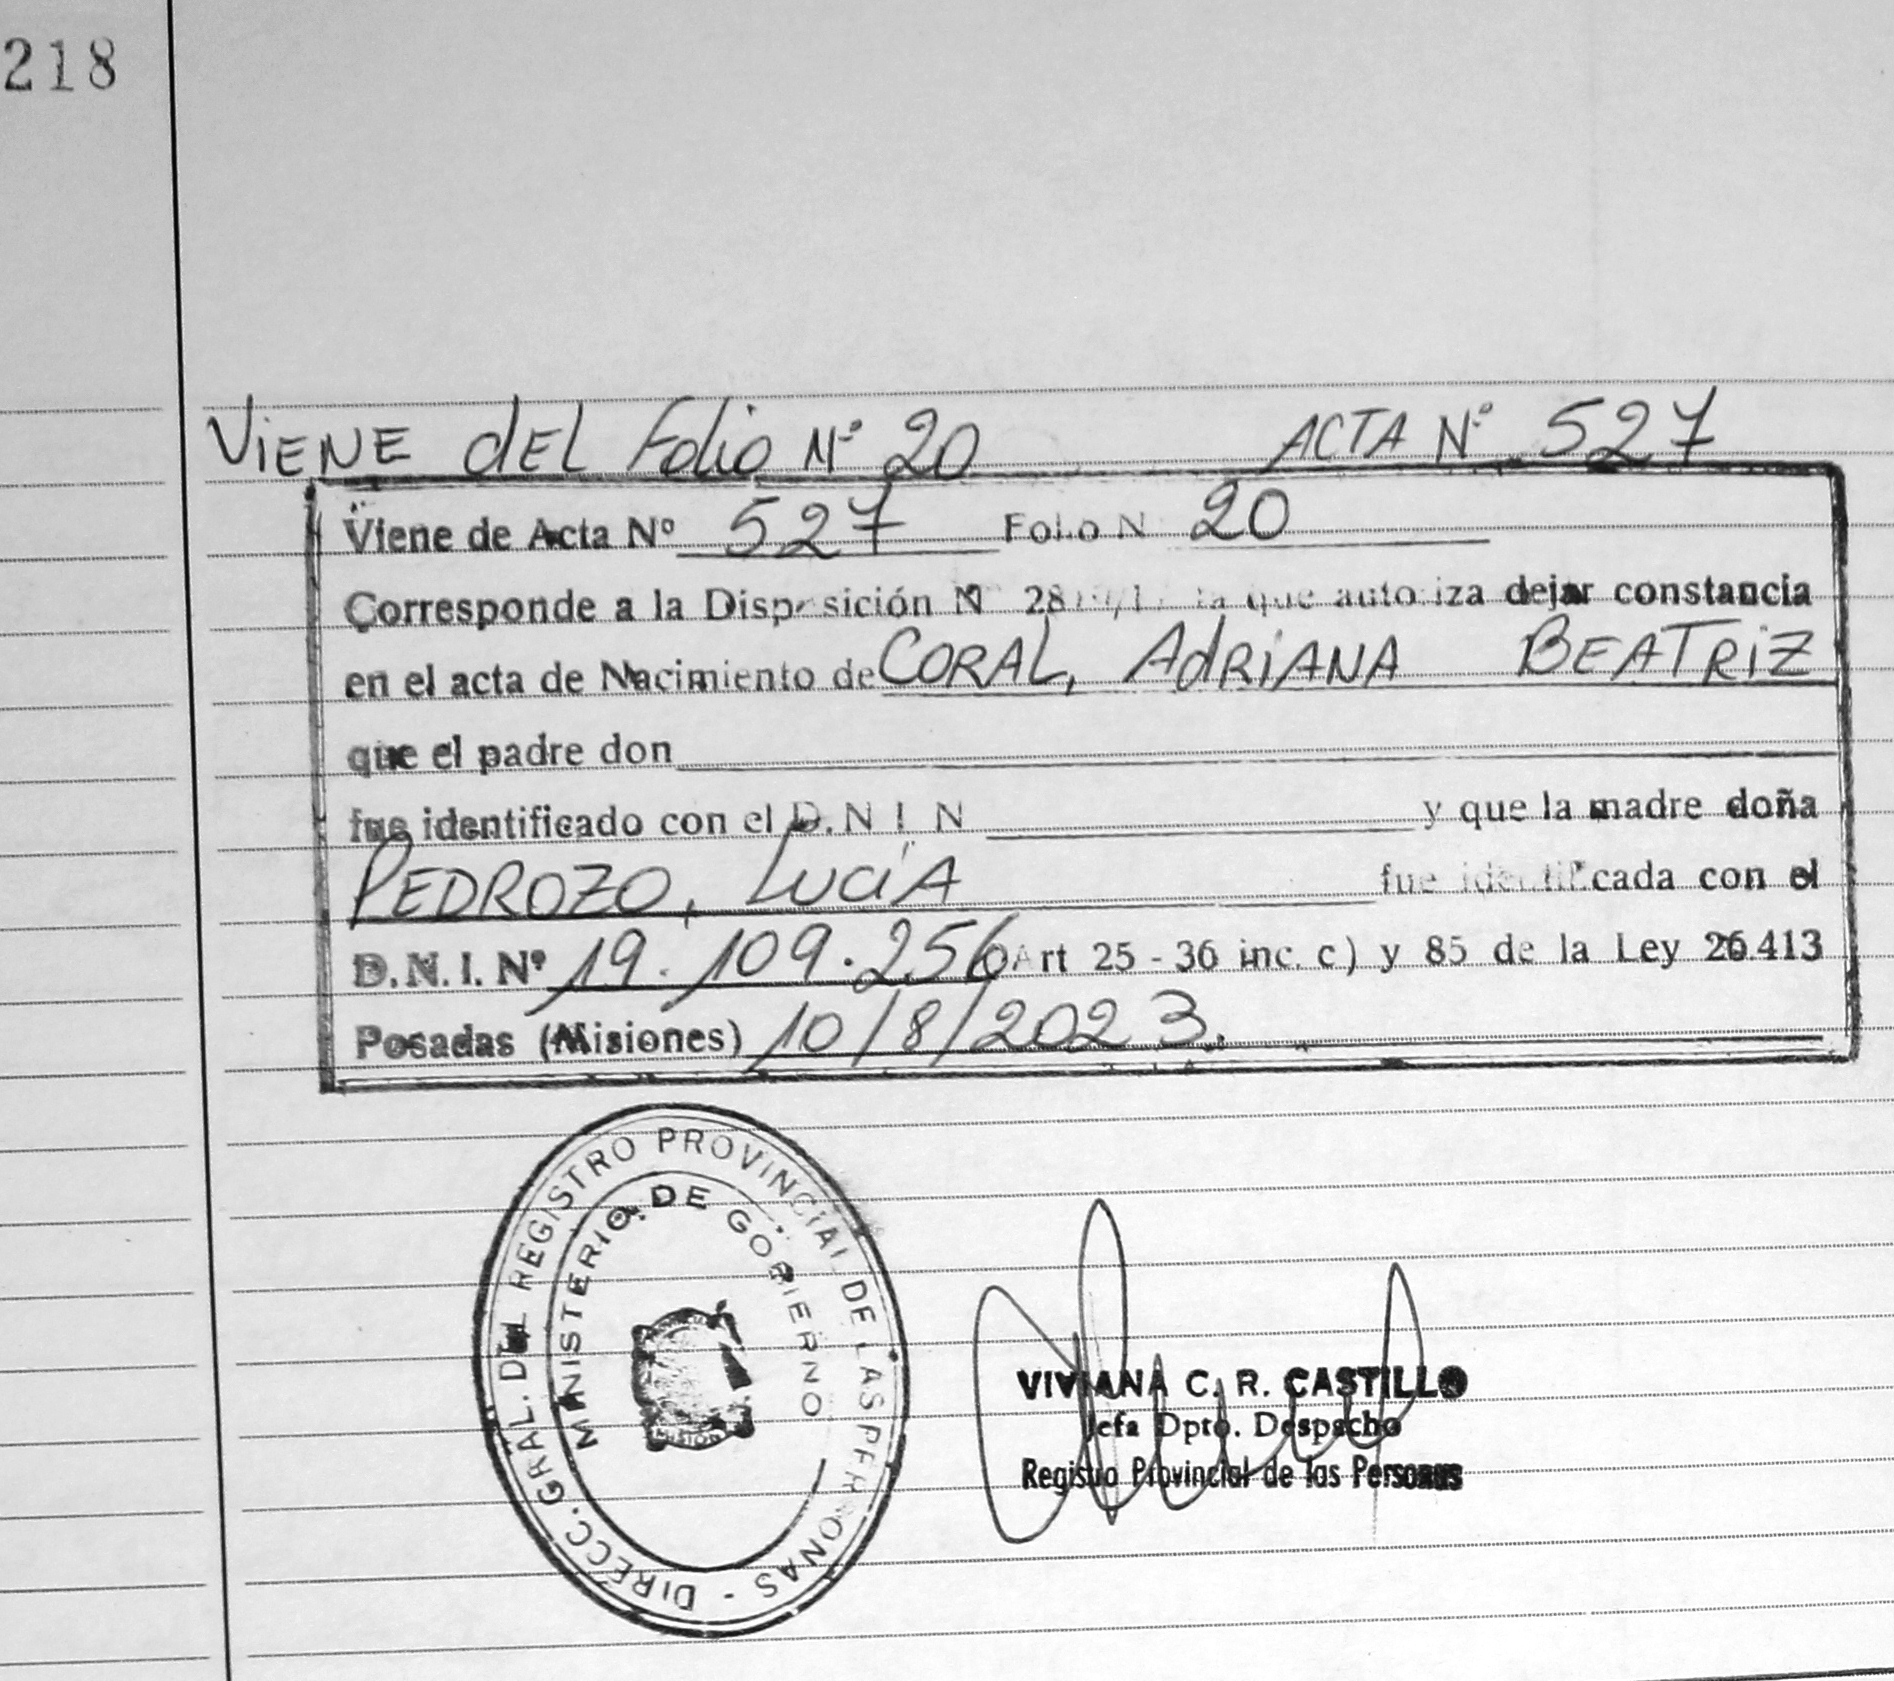 218
ViENE dEL Folio Nº 20 ACTA Nº 527
Viene de Acta Nº 527 Folio N 20
Corresponde a la Disposición N la que autoriza dejar constancia
en el acta de Nacimiento de CORAL, AdRiANA BEATRiZ
que el padre don
fue identificado con el D.N I N y que la madre doña
PEDROZO, LuciA fue identificada con el
D.N.I. Nº 19.109.256 Art 25 - 36 inc. c) y 85 de la Ley 26.413
Posadas (Misiones) 10/8/2023.
DIRECC. GRAL. DEL REGISTRO PROVINCIAL DE LAS PERSONAS -
MINISTERIO DE GOBIERNO
VIVIANA C. R. CASTILLO
Jefa Dpto. Despacho
Registro Provincial de las Personas